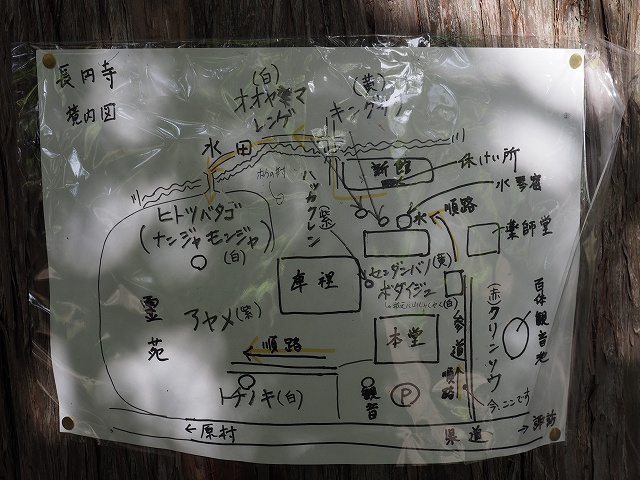 長円寺
境内図
(白)
オオヤママ
レンゲ
(黄)
水田
川
新館
休けい所
水琴窟
ハッカクレン
(紫)
水
順路
薬師堂
ヒトツバタゴ
(ナンジャモンジャ)
(白)
庫裡
センダンバノ(黄)
ボダイジュ
(白)
霊苑
アヤメ(紫)
順路
本堂
参道
順路
(赤)クリンソウ
百体観音地
今、ここです
トチノキ(白)
観音
P
←原村
県道
→諏訪
川